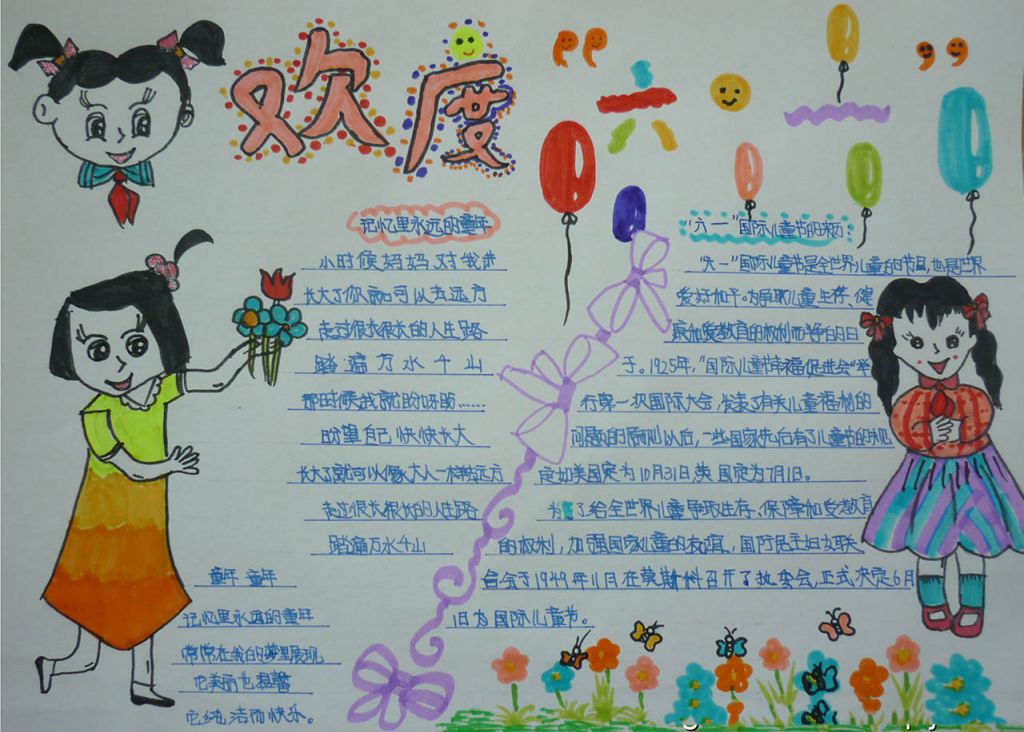 欢度“六一”
记忆里永远的童年
小时候妈妈对我讲
长大了你就可以去远方
走过很长很长的人生路
踏遍万水千山
那时候我就盼呀盼……
盼望自己快快长大
长大了就可以像大人一样去远方
走过很长很长的人生路
踏遍万水千山
童年 童年
记忆里永远的童年
常常在我的梦里展现
它美丽也温馨
它纯洁而快乐。
“六一”国际儿童节的来历
“六一”国际儿童节是全世界儿童的节日,也是世界
爱好和平。为争取儿童生存、健
康和受教育的权利而斗争的日
于。1925年,“国际儿童幸福促进会”举
行第一次国际大会,发表了有关儿童福利的
问题的原则以后,一些国家先后有了儿童节的规
定如美国定为10月31日英国定为7月1日。
为了给全世界儿童争取生存、保障和受教育
的权利,加强国家儿童的友谊,国际民主妇女联
合会于1949年11月在莫斯科召开了执委会,正式决定6月
1日为国际儿童节。